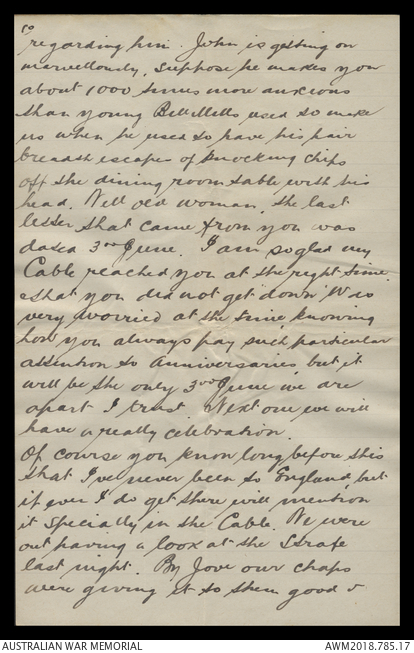 10
regarding him. John is getting on
marvellously, suppose he makes you
about 1000 times more anxious
than young Bill Metts used to make
us when he used to have his hair
breadth escapes of knocking chips
off the dining room table with his
head. Well old woman, the last
letter that came from you was
dated 3rd June. I am so glad my
Cable reached you at the right time
& that you did not get down. Was
very worried at the time, knowing
how you always pay such particular
attention to Anniversaries, but it
will be the only 3rd June we are
apart I trust. Next one we will
have a really celebration.
Of course you know long before this
that I've never been to England, but
if ever I do get there will mention
it specially in the Cable. We were
out having a look at the Strafe
last night. By Jove our chaps
were giving it to them good &
AUSTRALIAN WAR MEMORIAL
AWM2018.785.17